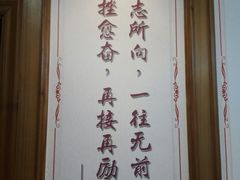 志所向，一往无前
挫愈奋，再接再励